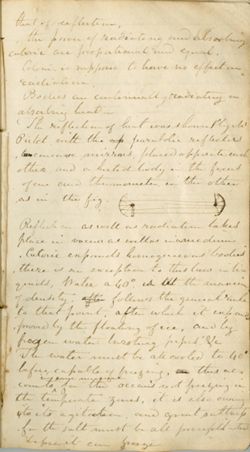 that of reflection.
The power of radiating and absorbing
caloric are proportional and equal.
Color is suppose to have no effect on
radiation.
Bodies are continually radiating or
absorbing heat
The reflection of heat was shown by
with the parabolic reflectors
concave mirrors, placed opposite each
other and a heated body in the focus
of one and thermometer in the other
as in the fig.
Reflection as well as radiation takes
place in vacuo as well as in medium.
Caloric expands homogeneous bodies
there is an exception to this law in
Water a 40° the maximum
of density, follows the general rule
to that point, after which it expands
proved by the floating of ice, and by
frozen water bursting pipes &c
The water must be all cooled to 40°
before capable of freezing, this ac
counts the oceans not freezing in
the temperate zones, it is also owing
to its agitation, and great saltness
for the salt must be all precipitated
before it can freeze